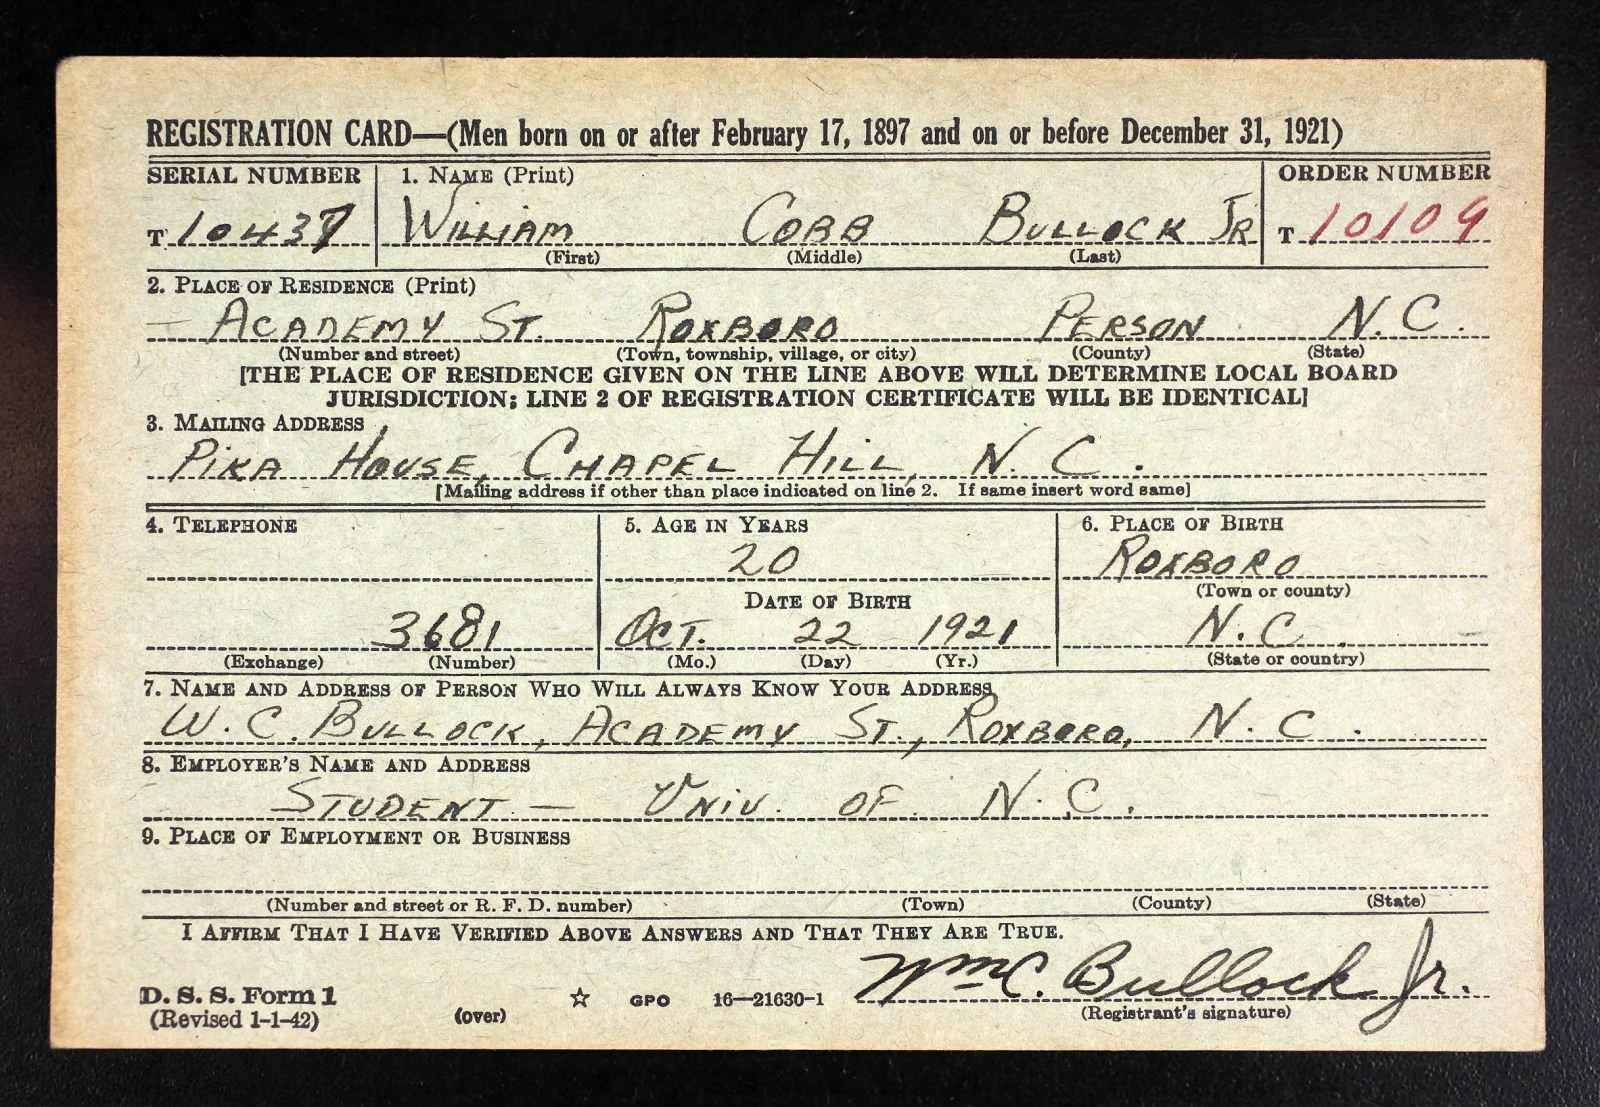 REGISTRATION CARD—(Men born on or after February 17, 1897 and on or before December 31, 1921)
SERIAL NUMBER 1. NAME (Print) ORDER NUMBER
T 10437 WILLIAM COBB BULLOCK JR T 10109
(First) (Middle) (Last)
2. PLACE OF RESIDENCE (Print)
— ACADEMY ST. ROXBORO PERSON N.C.
(Number and street) (Town, township, village, or city) (County) (State)
[THE PLACE OF RESIDENCE GIVEN ON THE LINE ABOVE WILL DETERMINE LOCAL BOARD
JURISDICTION; LINE 2 OF REGISTRATION CERTIFICATE WILL BE IDENTICAL]
3. MAILING ADDRESS
PIKA HOUSE, CHAPEL HILL, N.C.
[Mailing address if other than place indicated on line 2. If same insert word same]
4. TELEPHONE 5. AGE IN YEARS 6. PLACE OF BIRTH
20 ROXBORO
DATE OF BIRTH (Town or county)
3681 OCT. 22 1921 N.C.
(Exchange) (Number) (Mo.) (Day) (Yr.) (State or country)
7. NAME AND ADDRESS OF PERSON WHO WILL ALWAYS KNOW YOUR ADDRESS
W.C. BULLOCK, ACADEMY ST., ROXBORO, N.C.
8. EMPLOYER'S NAME AND ADDRESS
STUDENT — UNIV. OF N.C.
9. PLACE OF EMPLOYMENT OR BUSINESS
(Number and street or R. F. D. number) (Town) (County) (State)
I AFFIRM THAT I HAVE VERIFIED ABOVE ANSWERS AND THAT THEY ARE TRUE.
Wm C. Bullock Jr.
D. S. S. Form 1 GPO 16—21630-1
(Revised 1-1-42) (over) (Registrant's signature)